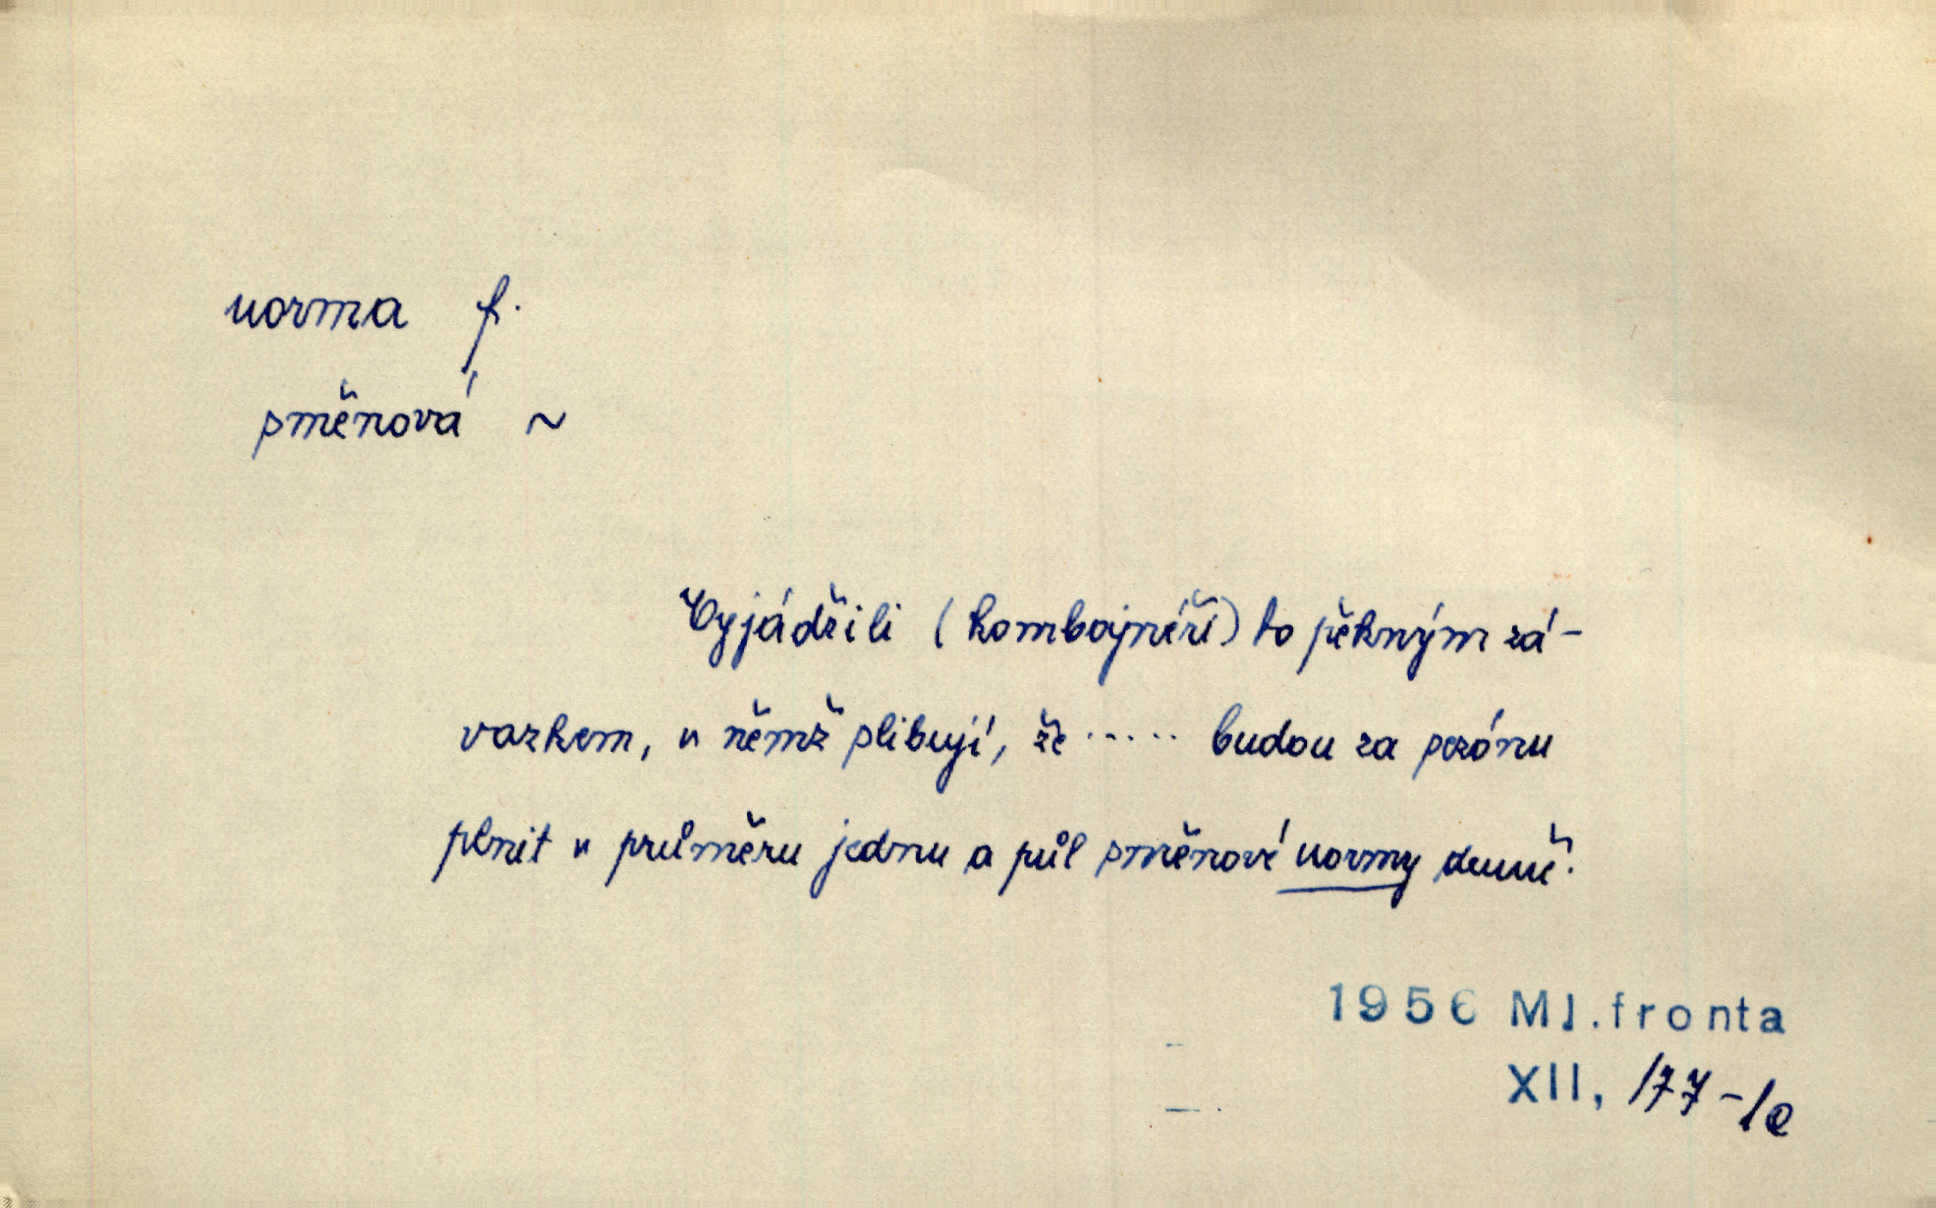 norma f.
směnová ~
Vyjádřili (kombajnéři) to pěkným zá-
vazkem, v němž slibují, že ..... budou za sezónu
plnit v průměru jednu a půl směnové normy denně.
1956 Ml.fronta
XII, 177-1e